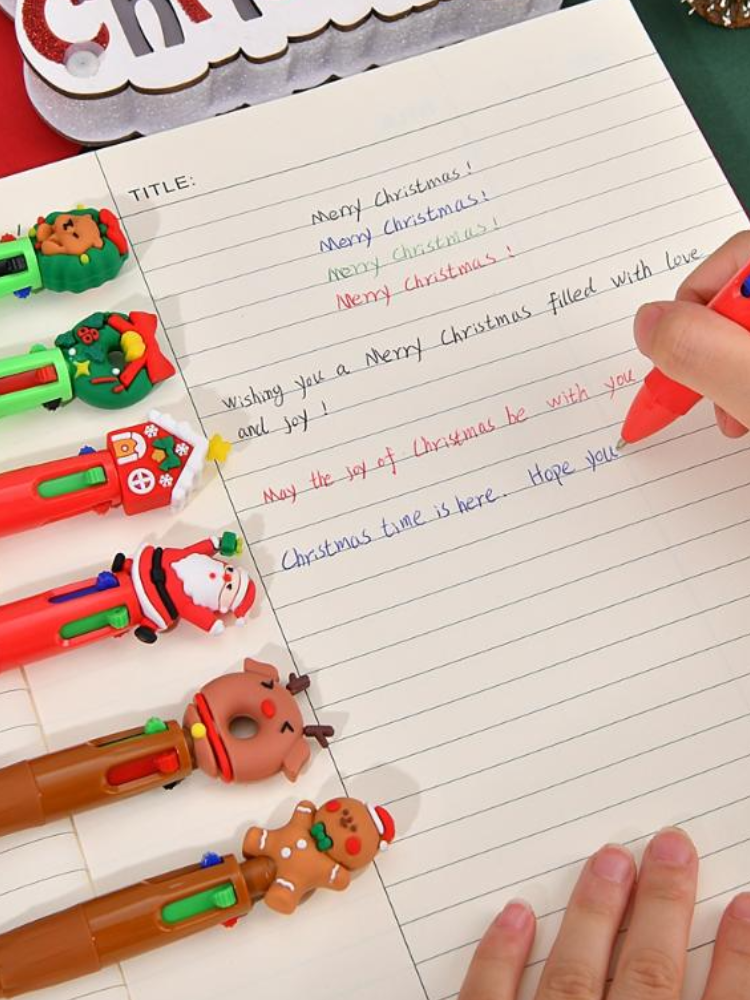 TITLE:
Merry Christmas!
Merry Christmas!
Merry Christmas!
Merry Christmas!
wishing you a Merry Christmas filled with love
and joy!
May the joy of Christmas be with you
Christmas time is here. Hope you